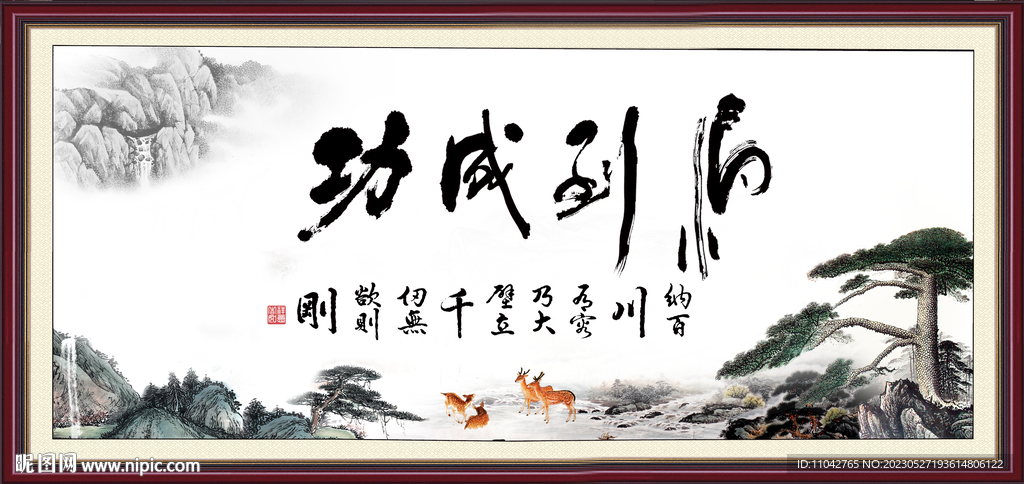 馬到成功
納百川有容乃大壁立千仞無欲則剛
昵图网 www.nipic.com
ID:11042765 NO:20230527193614806122